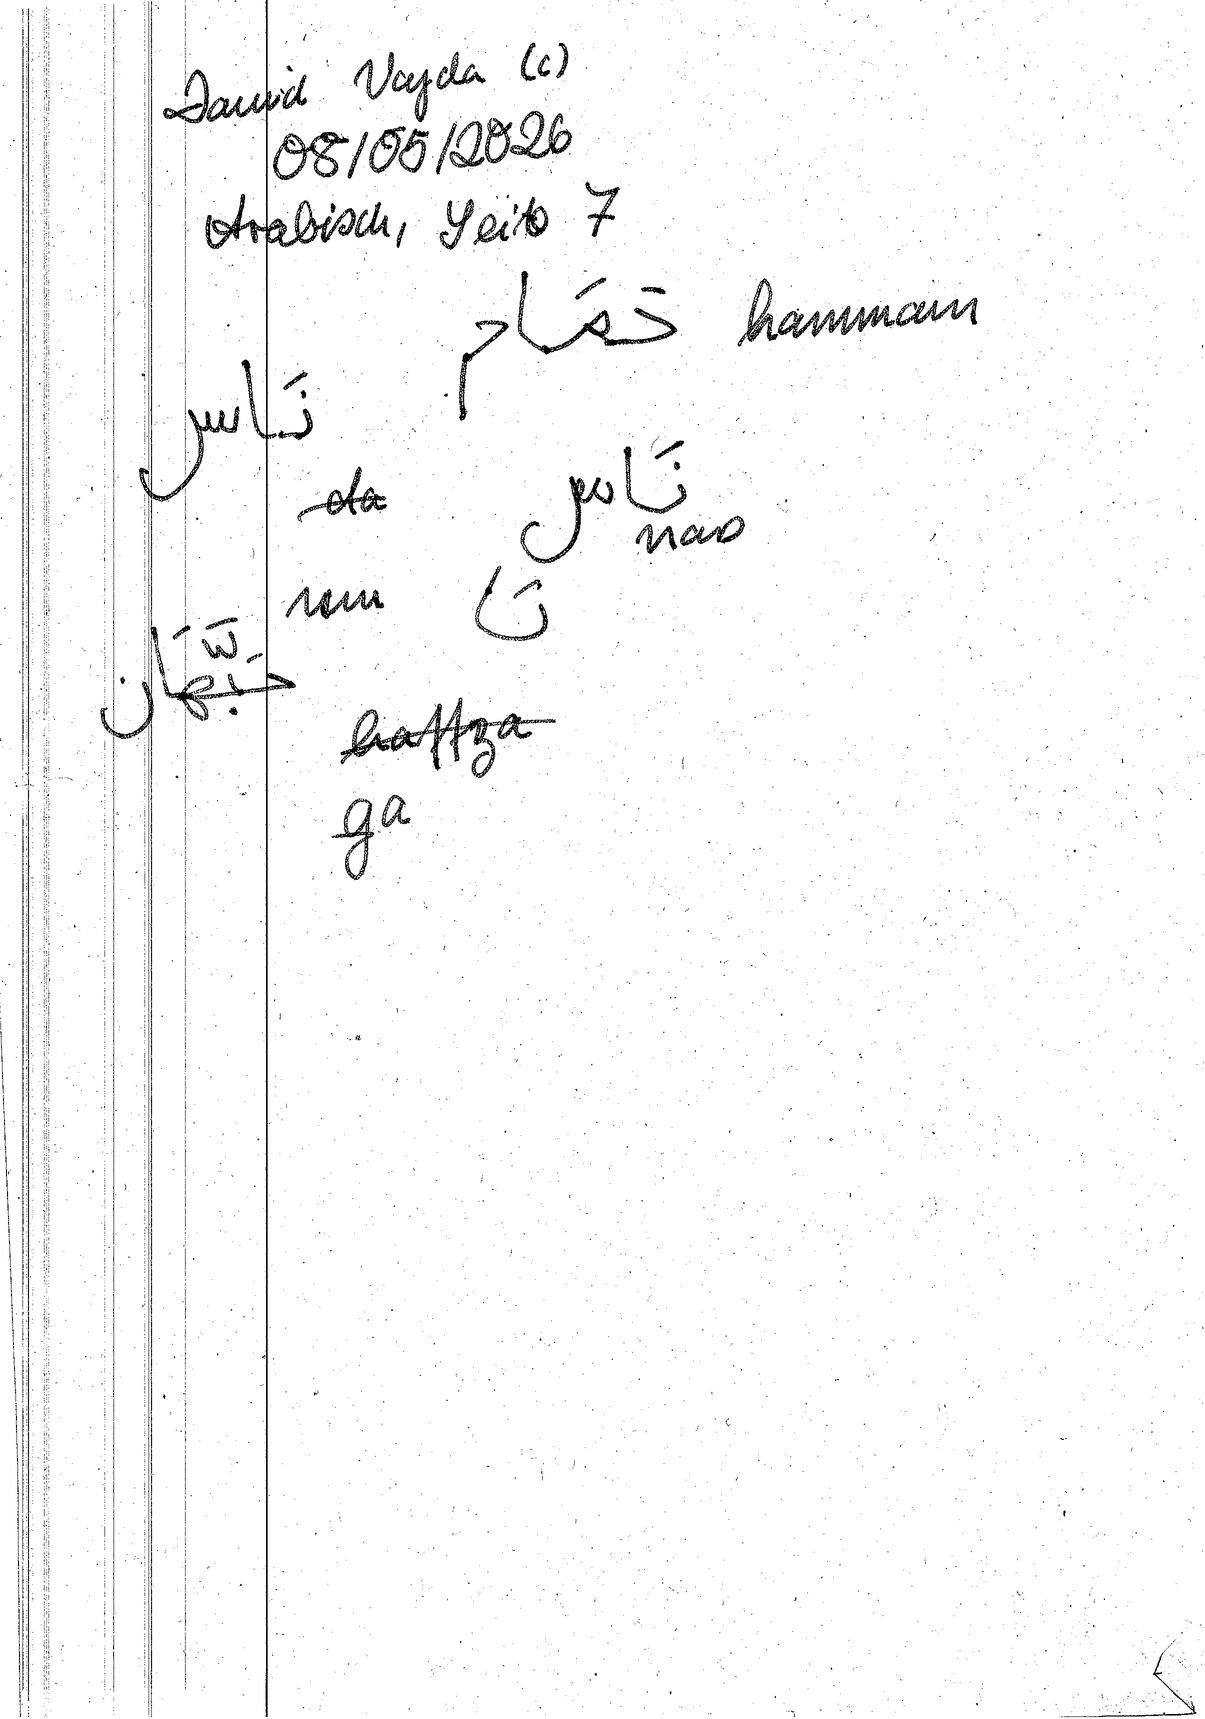 David Vajda (c)
08/05/2026
Arabisch, Seite 7
حَمَام hammam
نَاس
da
نَاس
nas
num نَا
haffza
ga